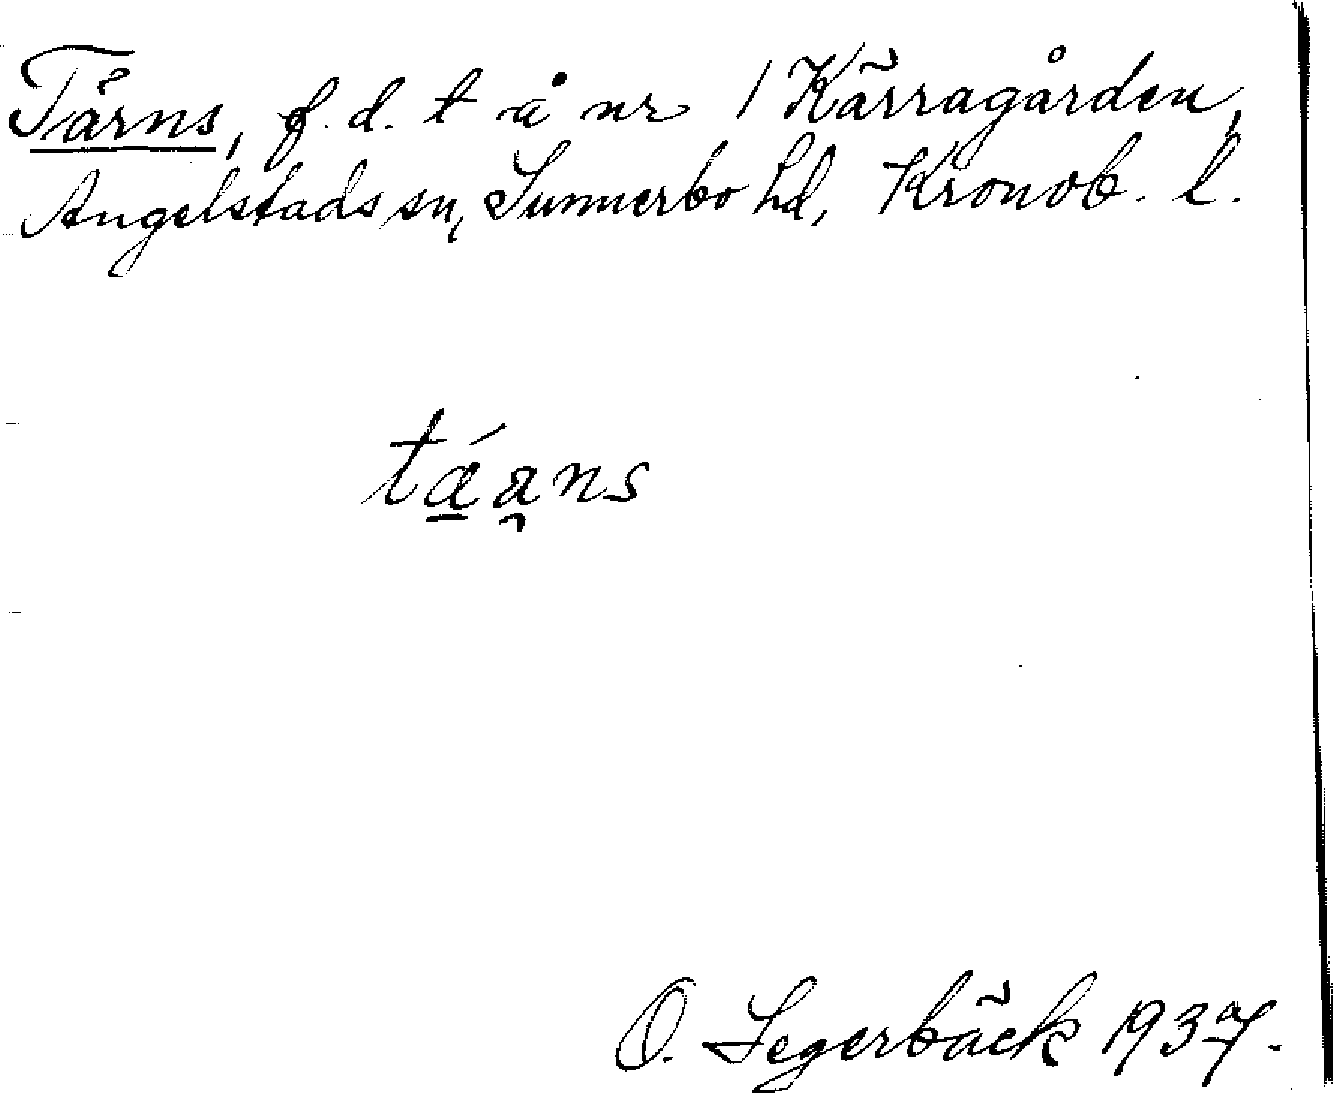 Tärns, f. d. t å nr 1 Kärragården,
Angelstads sn, Sunnerbo hd, Kronob. l.
tá̱a̯ns
O. Segerbäck 1937.